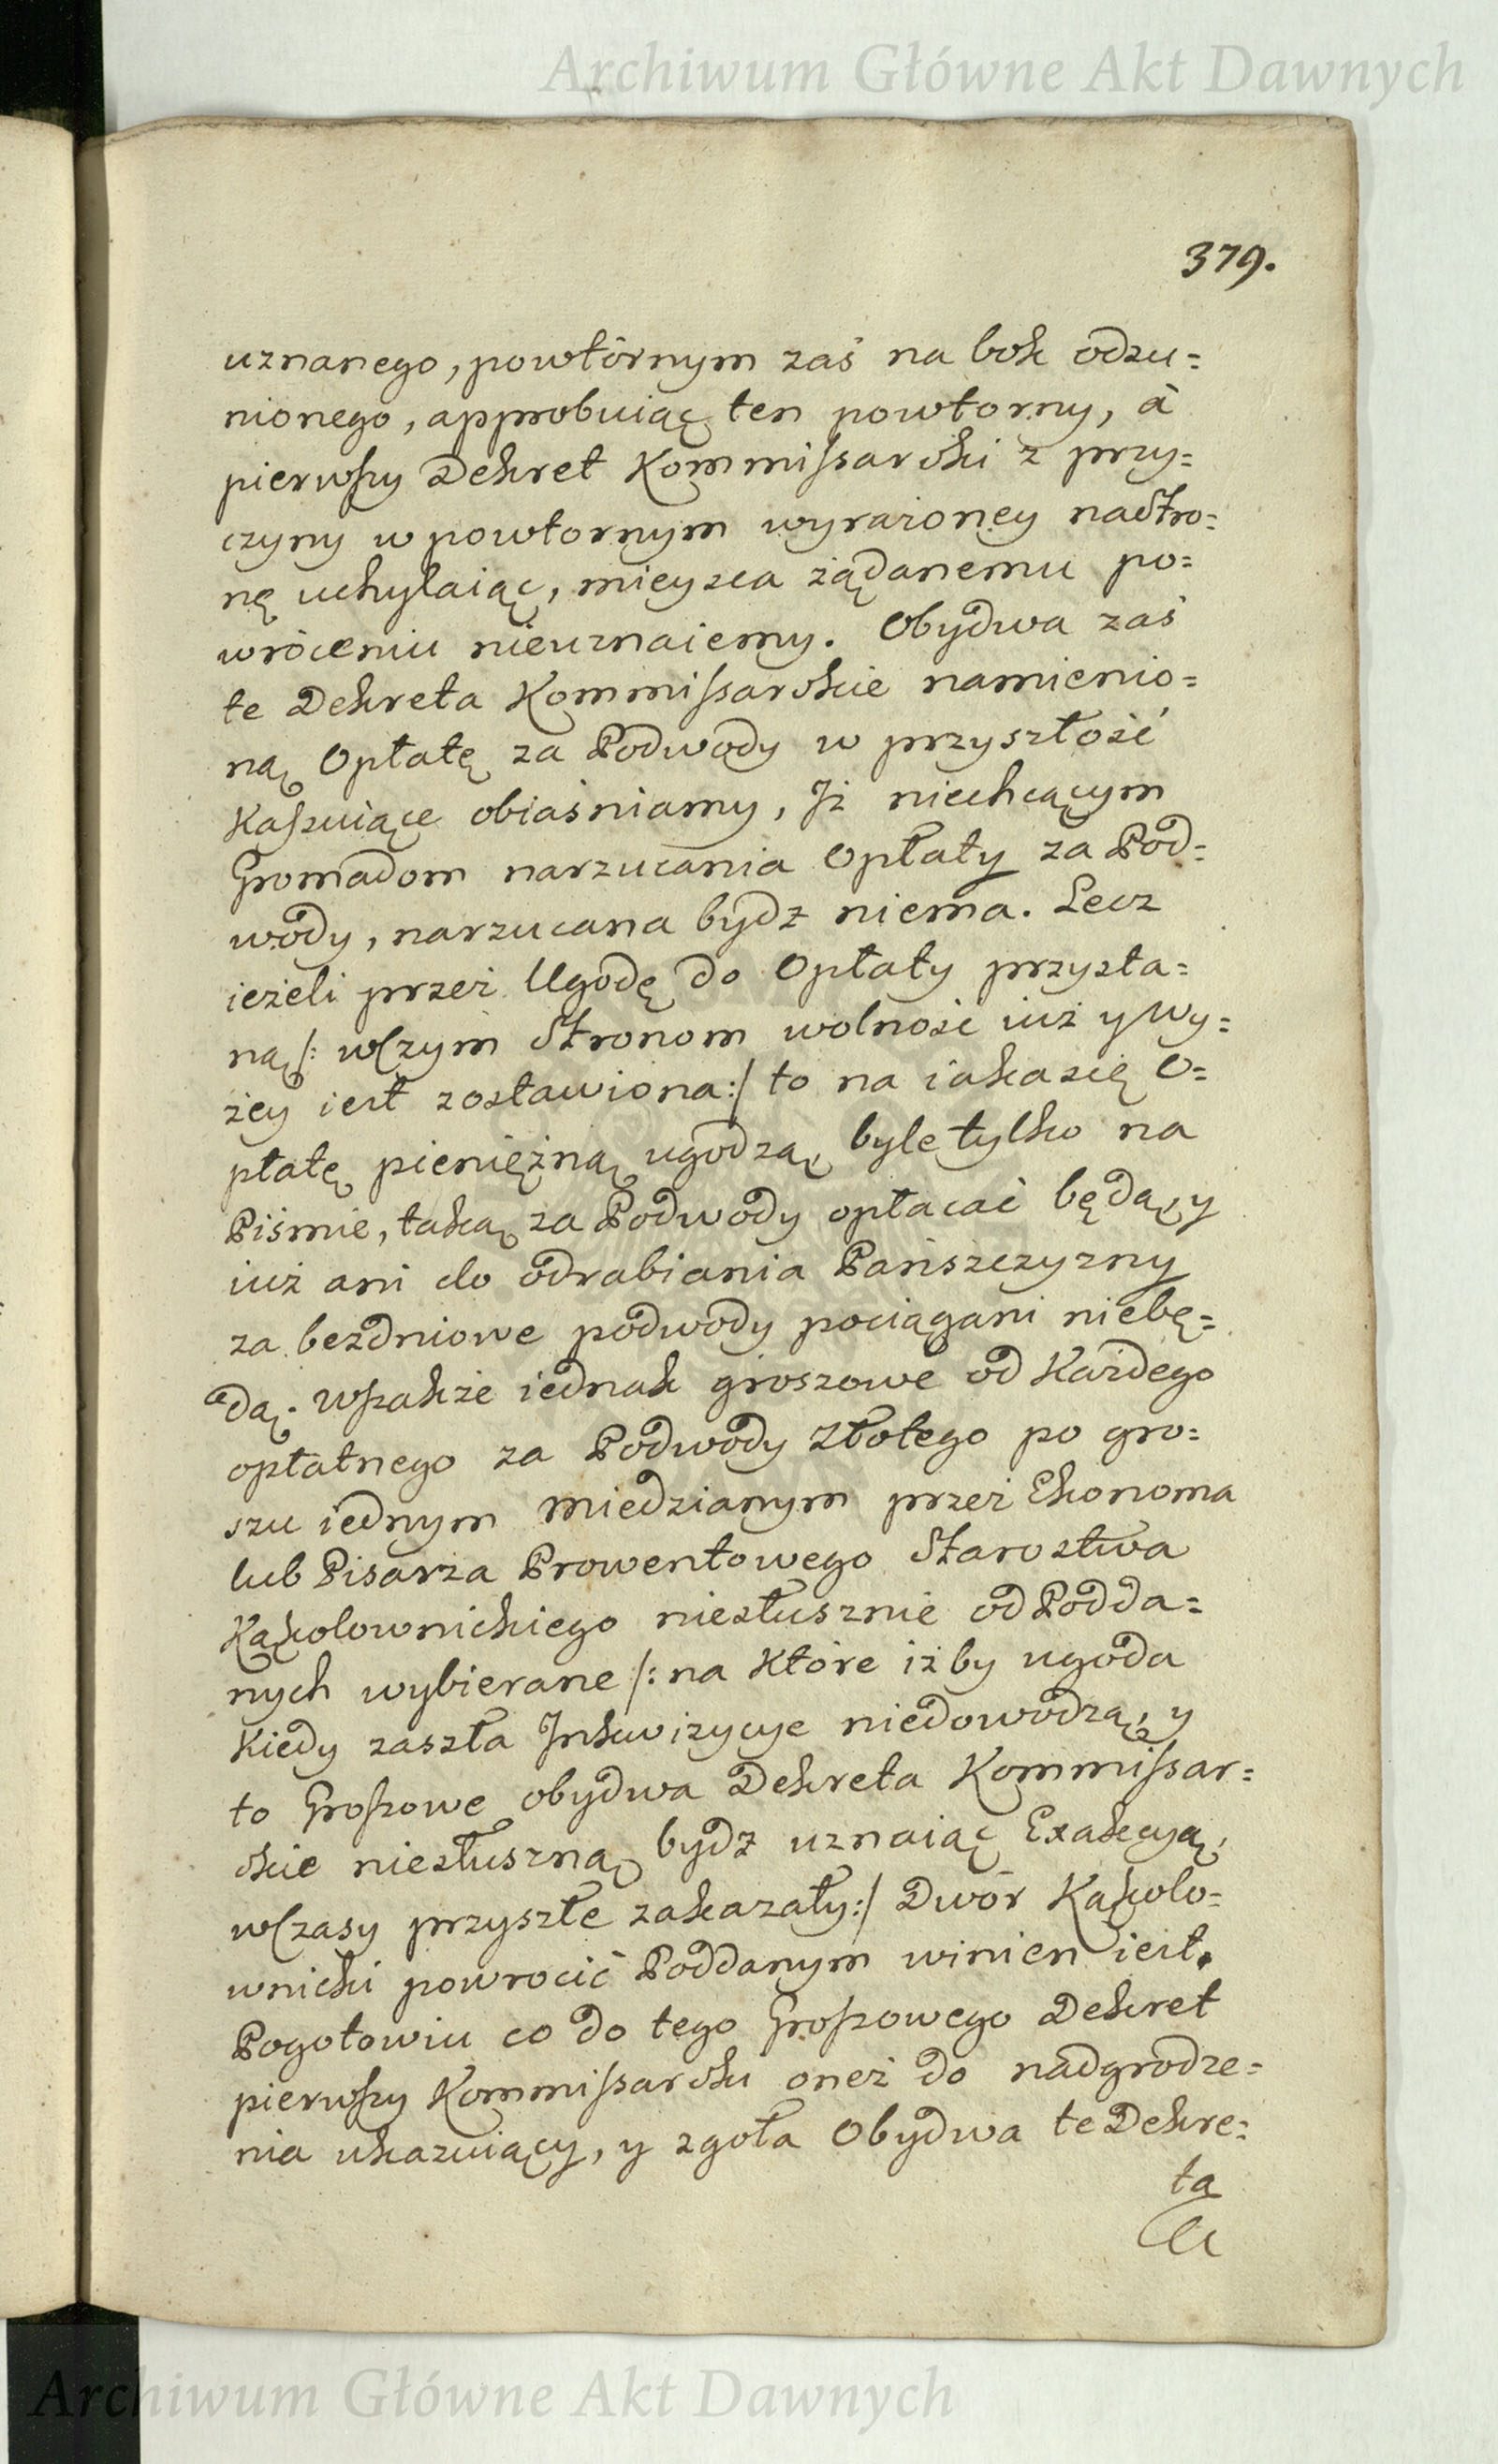 Archiwum Główne Akt Dawnych
379.
uznanego, powtórnym zaś na bok odsu=
nionego, approbuiąc ten powtorny, à
pierwszy Dekret Kommissarski z przy=
czyny w powtornym wyrażoney nastro=
nę uchylaiąc, mieysca żądanemu po=
wróceniu nieuznaiemy. Obydwa zaś
te Dekreta Kommissarskie namienio=
ną Opłatę za Podwody w przyszłość
Kassuiące obiaśniamy, Jż niechcącym
Gromadom narzucania Opłaty za Pod=
wody, narzucana bydz niema. Lecz
ieżeli przez Ugodę do Opłaty przysta=
ną /: wczym Stronom wolność iuż y wy=
żey iest zostawiona :/ to na iakasię O=
płatę pieniężną ugodzą, byle tylko na
Piśmie, taką za Podwody opłacać będą, y
iuż ani do odrabiania Pańszczyzny
za bezdniowe podwody pociągani niebę=
dą. Wszakże iednak groszowe od Każdego
opłatnego za Podwody złotego po gro=
szu iednym miedzianym przez Ekonoma
lub Pisarza Prowentowego Starostwa
Kąkolownickiego niesłusznie od Podda=
nych wybierane /: na Które iżby ugoda
Kiedy zaszła Jnkwizycye niedowodzą, y
to Groszowe obydwa Dekreta Kommissar=
skie niesłuszną bydz uznaiąc Exakcyą,
wczasy przyszłe zakazały :/ Dwór Kąkolo=
wnicki powrocić Poddanym winien iest.
Pogotowiu co do tego Groszowego Dekret
pierwszy Kommissarsku oneż do nadgrodze=
nia ukazuiący, y zgoła Obydwa te Dekre=
ta
Archiwum Główne Akt Dawnych